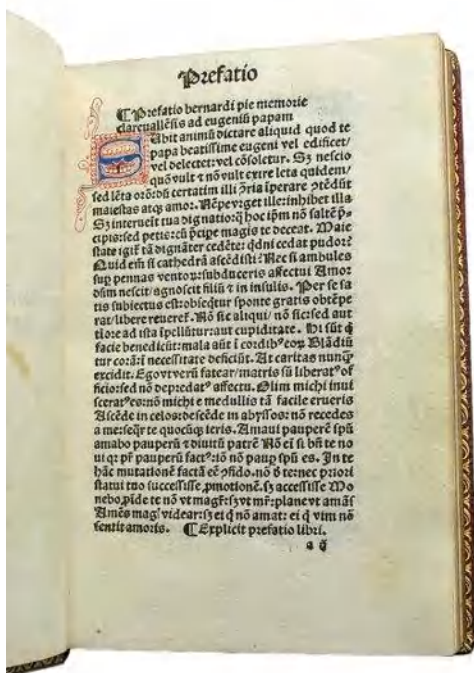 Prefatio
¶ Prefatio bernardi pie memorie
clareuallẽsis ad eugeniũ papam
Subit animũ dictare aliquid quod te
papa beatissime eugeni vel edificet/
vel delectet: vel cõsoletur. Sꝫ nescio
quõ vult ⁊ nõ vult exire leta quidem/
sed lẽta orõ: dũ certatim illi ꝯ̃ria ĩperare ꝯtẽdũt
maiestas atqꝫ amor. Nẽpe vrget ille: inhibet illa
Sꝫ interuenit tua dignatio: q̃ hoc ip̃m nõ saltẽ p̃-
cipis: sed petis: cũ p̃cipe magis te deceat. Maie
state igit̃ tã dignãter cedẽte: qdni cedat pudor?
Quid em̃ si cathedrã ascẽdisti? Nec si ambules
sup pennas ventoꝝ: subduceris affectui Amor
dñm nescit/ agnoscit filiũ ⁊ in insulis. Per se sa
tis subiectus est: obseqtur sponte gratis obtẽpe
rat/ libere reueret̃. Nõ sic aliqui/ nõ sic: sed aut
tiore ad ista ĩpellũtur: aut cupiditate. Hi sũt q̃
facie benedicũt: mala aũt ĩ cordibꝰ eoꝝ Blãdiũ
tur corã: ĩ necessitate deficiũt. At caritas nunqꝫ
excidit. Ego vt verũ fatear/ matris sũ liberatꝰ of
ficio: sed nõ depredatꝰ affectu. Olim michi inui
sceratꝰ es: nõ michi e medullis tã facile erueris
Ascẽde in celos: descẽde in abyssos: nõ recedes
a me: seq̃r te quocũqꝫ ieris. Amaui pauperẽ spũ
amabo pauperũ ⁊ diuitũ patrẽ Nõ em̃ si bñ te no
ui qꝛ pr̃ pauperũ factꝰ: iõ nõ paup spũ es. In te
hãc mutationẽ factã eẽ ꝯfido. nõ ð te: nec priori
statui tuo successisse ꝓmotionẽ. sꝫ accessisse Mo
nebo ꝓide te nõ vt magr̃: sꝫ vt mr̃: plane vt amãs
Amẽs magꝭ videar: sꝫ ei q̃ nõ amat: ei q̃ vim nõ
sentit amoris. ¶ Explicit prefatio libri.
a ij